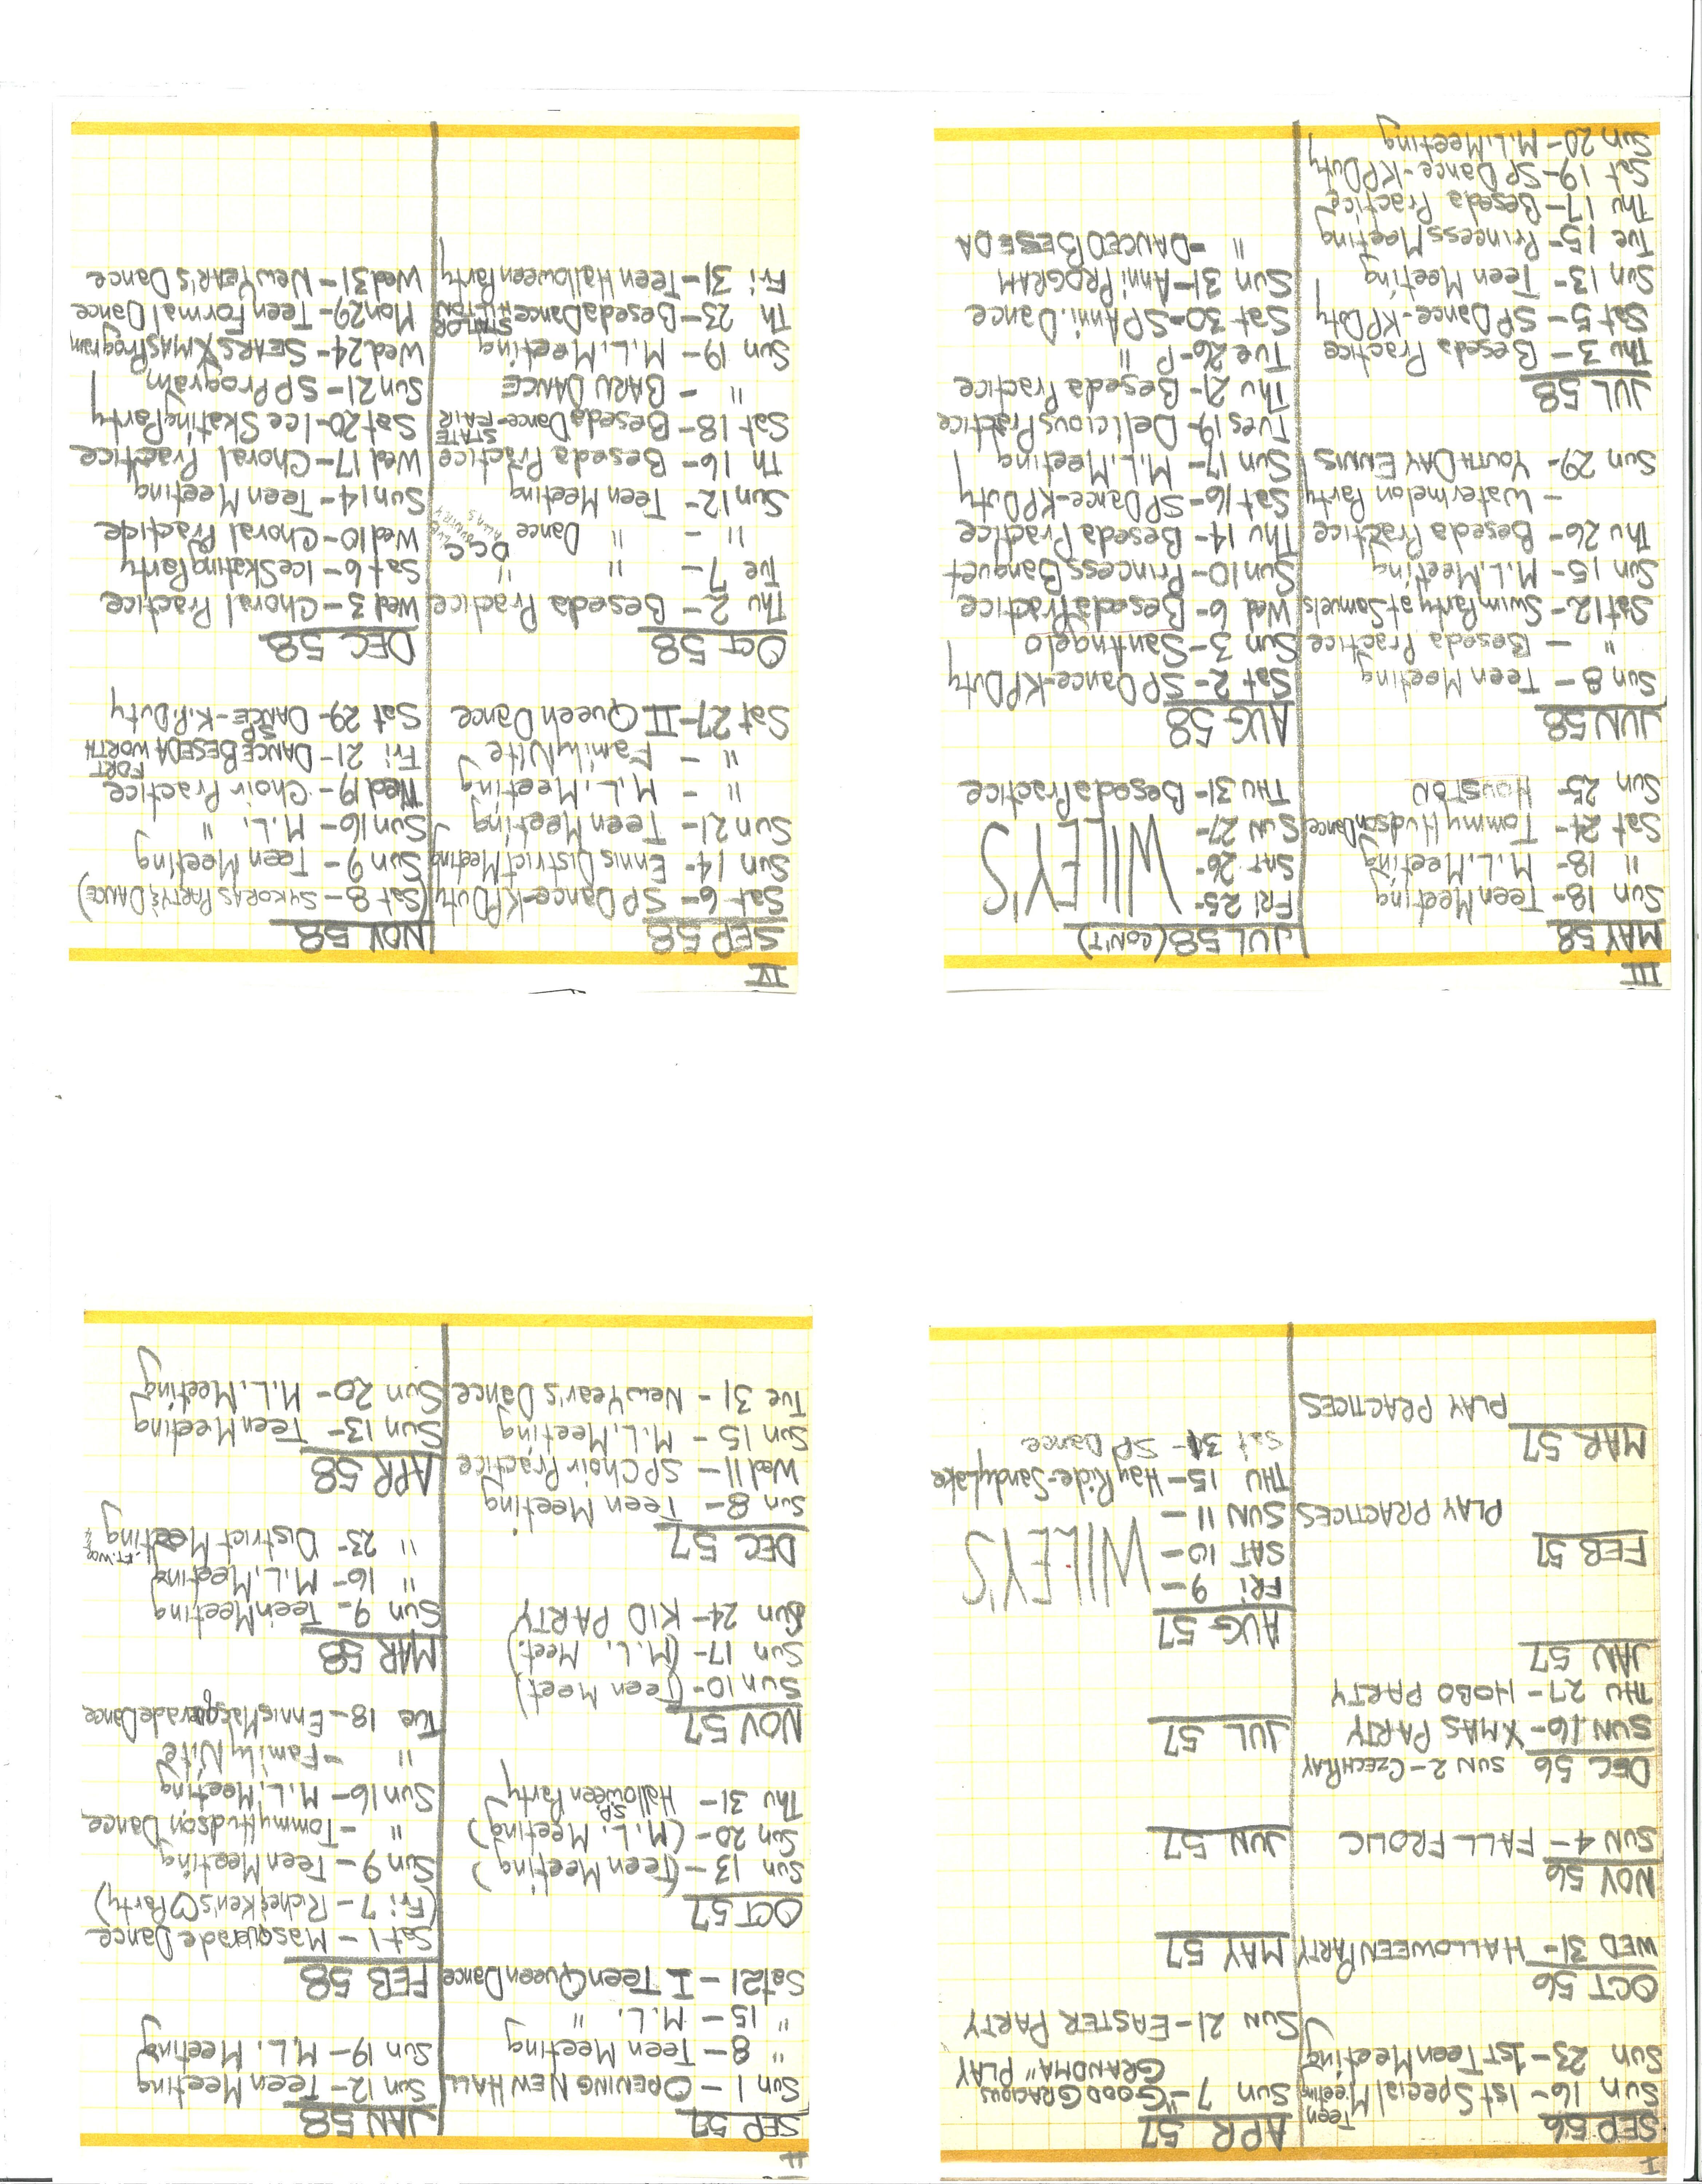 I
SEP 56
Sun 16- 1st Special Teen Meeting
Sun 23- 1st Teen Meeting
OCT 56
WED 31- HALLOWEEN PARTY
NOV 56
SUN 4- FALL FROLIC
DEC 56 SUN 2- CZECH PLAY
SUN 16- XMAS PARTY
THU 27- HOBO PARTY
JAN 57
FEB 57
PLAY PRACTICES
MAR 57
PLAY PRACTICES
APR 57
Sun 7- "GOOD GRACIOUS
GRANDMA" PLAY
SUN 21- EASTER PARTY
MAY 57
JUN 57
JUL 57
AUG 57
FRI 9-
SAT 10- WILEY'S
SUN 11-
THU 15- Hay Ride-Sandy Lake
Sat 31- SP Dance
II
SEP 57
Sun 1- OPENING NEW HALL
" 8- Teen Meeting
" 15- M.L. "
Sat 21- I Teen Queen Dance
OCT 57
Sun 13- (Teen Meeting)
Sun 20- (M.L. Meeting)
Thu 31- S.P. Halloween Party
NOV 57
Sun 10- (Teen Meet)
Sun 17- (M.L. Meet.)
Sun 24- KID PARTY
DEC 57
Sun 8- Teen Meeting
Wed 11- SP Choir Practice
Sun 15- M.L. Meeting
Tue 31- New Year's Dance
JAN 58
Sun 12- Teen Meeting
Sun 19- M.L. Meeting
FEB 58
Sat 1- Masquerade Dance
(Fri 7- Riche & Ken's ♡ Party)
Sun 9- Teen Meeting
" - Tommy Hudson Dance
Sun 16- M.L. Meeting
" - Family Nite
Tue 18- Ennis Masquerade Dance
MAR 58
Sun 9- Teen Meeting
" 16- M.L. Meeting
" 23- District Meeting
APR 58
Sun 13- Teen Meeting
Sun 20- M.L. Meeting
III
MAY 58
Sun 18- Teen Meeting
" 18- M.L. Meeting
Sat 24- Tommy Hudson Dance
Sun 25- HOUSTON
JUN 58
Sun 8- Teen Meeting
" - Beseda Practice
Sat 12- Swim Party at Samuels
Sun 15- M.L. Meeting
Thu 26- Beseda Practice
- Watermelon Party
Sun 29- YOUTH DAY ENNIS
JUL 58
Thu 3- Beseda Practice
Sat 5- SP Dance-KP Duty
Sun 13- Teen Meeting
Tue 15- Princess Meeting
Thu 17- Beseda Practice
Sat 19- SP Dance-KP Duty
Sun 20- M.L. Meeting
JUL 58 (CON'T)
FRI 25-
SAT 26- WILEY'S
SUN 27-
THU 31- Beseda Practice
AUG 58
Sat 2- SP Dance-KP Duty
Sun 3- San Angelo
Wed 6- Beseda Practice
Sun 10- Princess Banquet
Thu 14- Beseda Practice
Sat 16- SP Dance-KP Duty
Sun 17- M.L. Meeting
Tues 19- Delicious Practice
Thu 21- Beseda Practice
Tue 26- P "
Sat 30- SP Anni. Dance
Sun 31- Anni PROGRAM
" - DANCED BESEDA
IV
SEP 58
Sat 6- SP Dance-KP Duty
Sun 14- Ennis District Meeting
Sun 21- Teen Meeting
" - M.L. Meeting
" - Family Nite
Sat 27- II Queen Dance
OCT 58
Thu 2- Beseda Practice
Tue 7- " "
" - " Dance DCC
Sun 12- Teen Meeting
Th 16- Beseda Practice
Sat 18- Beseda Dance- STATE FAIR
" - BARU DANCE
Sun 19- M.L. Meeting
Th 23- Beseda Dance STATLOR HILTON
Fri 31- Teen Halloween Party
NOV 58
(Sat 8- SYKORAS PARTY & DANCE)
Sun 9- Teen Meeting
Sun 16- M.L. "
Wed 19- Choir Practice
Fri 21- DANCE BESEDA FORT WORTH
Sat 29- SP DANCE-K.P. Duty
DEC 58
Wed 3- Choral Practice
Sat 6- Ice Skating Party
Wed 10- Choral Practice
Sun 14- Teen Meeting
Wed 17- Choral Practice
Sat 20- Ice Skating Party
Sun 21- SP Program
Wed 24- SEARS XMAS Program
Mon 29- Teen Formal Dance
Wed 31- New YEAR'S Dance